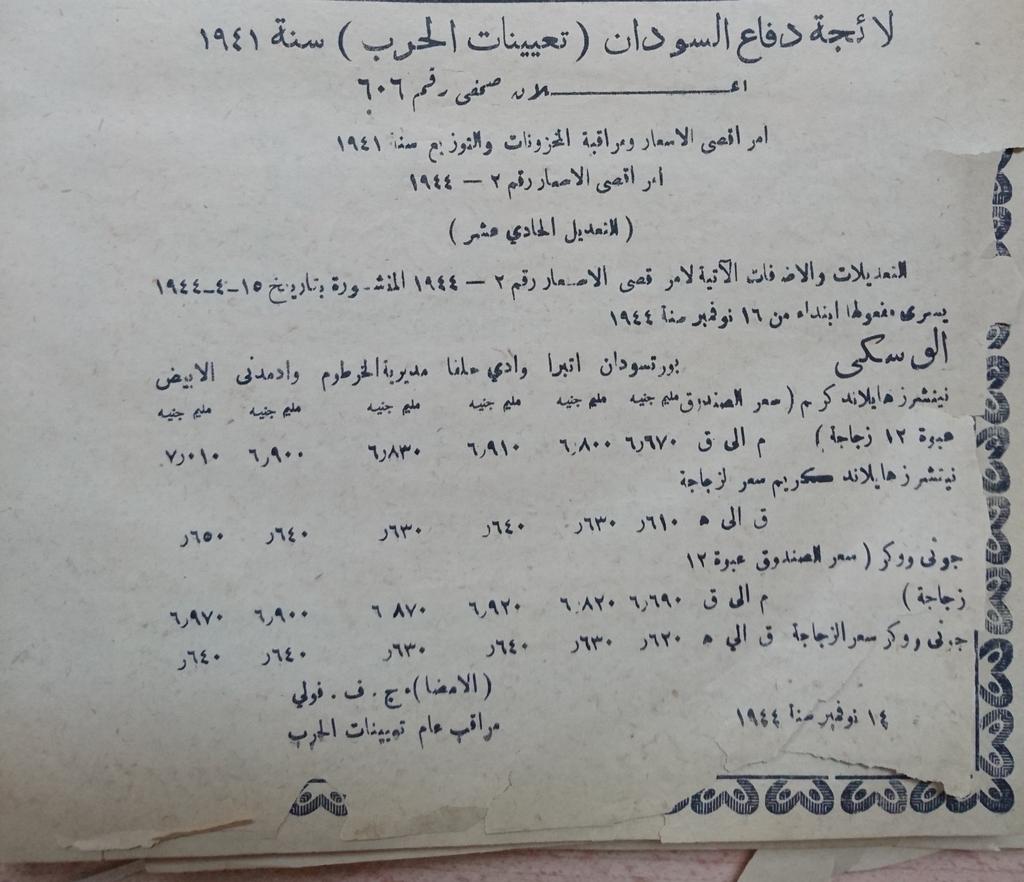 لائحة دفاع السودان (تعيينات الحرب) سنة ١٩٤١
اعـــلان صحفى رقم ٦٠٦
امر اقصى الاسعار ومراقبة المخزونات والتوزيع سنة ١٩٤١
امر اقصى الاسعار رقم ٢ – ١٩٤٤
(التعديل الحادي عشر)
التعديلات والاضافات الآتية لامر قصى الاسعار رقم ٢ – ١٩٤٤ المنشورة بتاريخ ١٥–٤–١٩٤٤
يسرى مفعولها ابتداء من ١٦ نوفمبر سنة ١٩٤٤
الوسكى
بورتسودان اتبرا وادي حلفا مديرية الخرطوم وادمدنى الابيض
نيتشرز هايلاند كرم (سعر الصندوق مليم جنيه مليم جنيه مليم جنيه مليم جنيه مليم جنيه مليم جنيه
عبوة ١٢ زجاجة) م الى ق ٦٫٦٧٠ ٦٫٨٠٠ ٦٫٩١٠ ٦٫٨٣٠ ٦٫٩٠٠ ٧٫٠١٠
نيتشرز هايلاند كريم سعر لزجاجة
ق الى ه ٦١٠ر ٦٣٠ر ٦٤٠ر ٦٣٠ر ٦٤٠ر ٦٥٠ر
جونى ووكر (سعر الصندوق عبوة ١٢
زجاجة) م الى ق ٦٫٦٩٠ ٦٫٨٢٠ ٦٫٩٢٠ ٦ ٨٧٠ ٦٫٩٠٠ ٦٫٩٧٠
جونى ووكر سعر الزجاجة ق الي ه ٦٢٠ر ٦٣٠ر ٦٤٠ر ٦٣٠ر ٦٤٠ر ٦٤٠ر
(الامضا) ج . ف . فولي
١٤ نوفمبر سنة ١٩٤٤
مراقب عام تعيينات الحرب